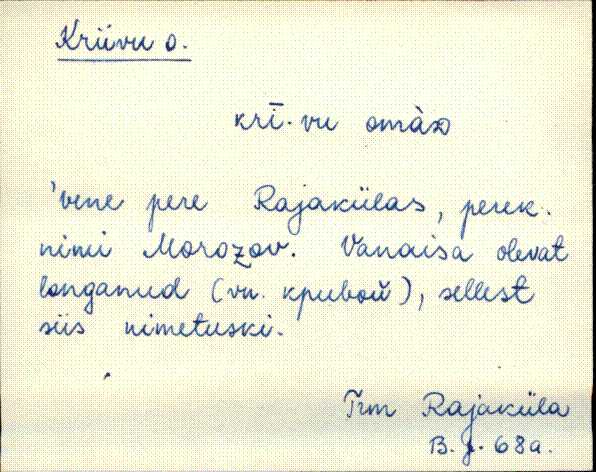 Kriivu o.
krī·vu omàᴅ
'vene pere Rajakülas, perek.
nimi Morozov. Vanaisa olevat
longanud (vn. кривой), sellest
siis nimetuski.
Trm Rajaküla
B. J. 68a.